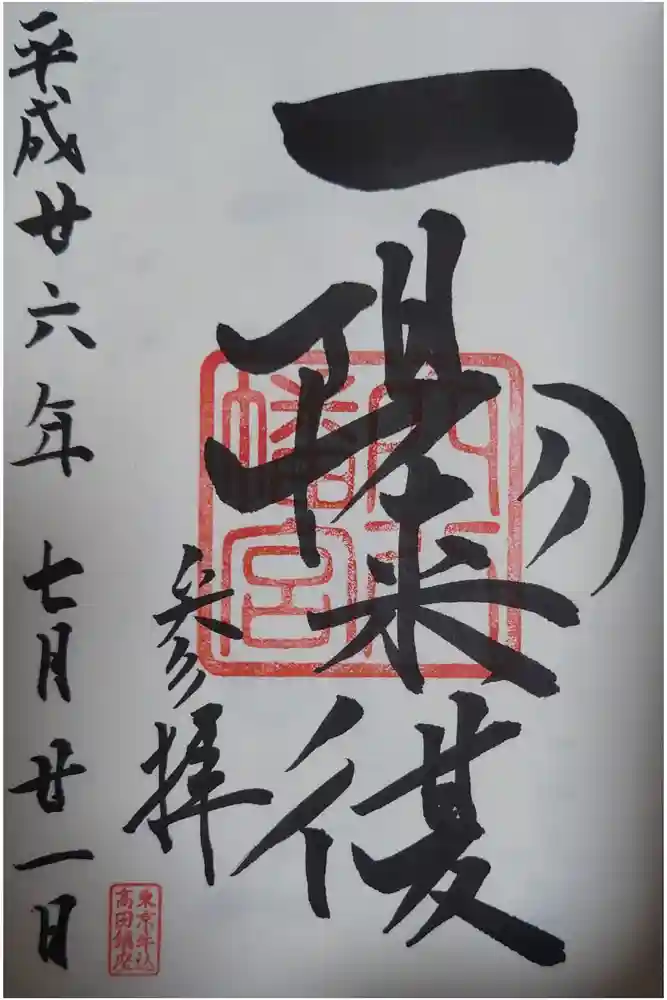 一陽来復
穴八
幡宮
参拝
東京牛込
高田鎮座
平成廿六年 七月廿一日